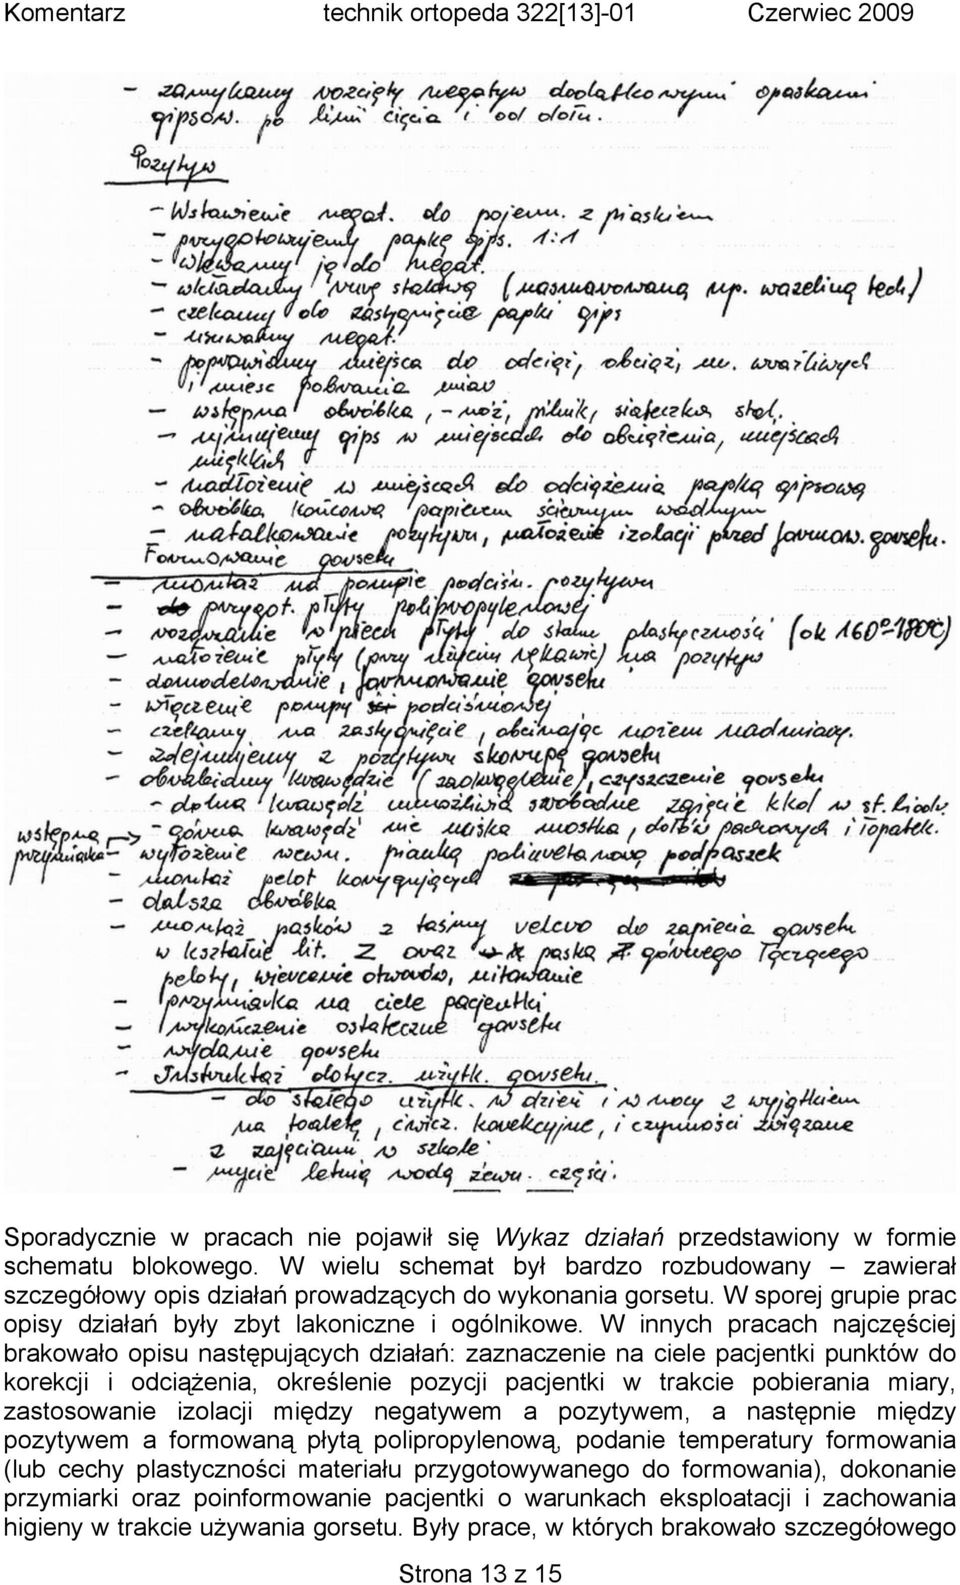 Komentarz technik ortopeda 322[13]-01 Czerwiec 2009
- zamykamy rozcięty negatyw dodatkowymi opaskami
gipsow. po linii cięcia i od dołu.
Pozytyw
- Wstawienie negat. do pojemn. z piaskiem
- przygotowujemy papkę gips. 1:1
- wlewamy ją do negat.
- wkładamy rurę stalową (nasmarowaną np. wazeliną tech.)
- czekamy do zastygnięcia papki gips
- usuwamy negat.
- poprawiamy miejsca do odciąż, obciąż, m. wrażliwych
i miejsc pobrania miar
- wstępna obróbka, - nóż, pilnik, siateczka stal.
- ujmujemy gips w miejscach do obciążenia, miejscach
miękkich
- nadłożenie w miejscach do odciążenia papką gipsową
- obróbka końcowa papierem ściernym wodnym
- natalkowanie pozytywu, nałożenie izolacji przed formow. gorsetu.
Formowanie gorsetu
- montaż na pompie podciśn. pozytywu
- przygot. płyty polipropylenowej
- rozgrzanie w piecu płyty do stanu plastyczności (ok 160°-180°C)
- nałożenie płyty (przy użyciu rękawic) na pozytyw
- domodelowanie, formowanie gorsetu
- włączenie pompy podciśnieniowej
- czekamy na zastygnięcie, obcinając nożem nadmiary.
- zdejmujemy z pozytywu skorupę gorsetu
- obrabiamy krawędzie (zaokrąglenie), czyszczenie gorsetu
- dolna krawędź umożliwia swobodne zgięcie kkd w st. biodr.
wstępna przymiarka → - górna krawędź nie uciska mostka, dołów pachowych i łopatek.
- wyłożenie wewn. pianką poliuretanową podpaszek
- montaż pelot korygujących
- dalsza obróbka
- montaż pasków z taśmy velcro do zapięcia gorsetu
w kształcie lit. Z oraz paska górnego łączącego
peloty, wiercenie otworów, nitowanie
- przymiarka na ciele pacjentki
- wykończenie ostateczne gorsetu
- wydanie gorsetu
- Instruktaż dotycz. użytk. gorsetu.
- do stałego użytk. w dzień i w nocy z wyjątkiem
na toaletę, ćwicz. korekcyjne, i czynności związane
z zajęciami w szkole
- mycie letnią wodą zewn. części.
Sporadycznie w pracach nie pojawił się Wykaz działań przedstawiony w formie
schematu blokowego. W wielu schemat był bardzo rozbudowany – zawierał
szczegółowy opis działań prowadzących do wykonania gorsetu. W sporej grupie prac
opisy działań były zbyt lakoniczne i ogólnikowe. W innych pracach najczęściej
brakowało opisu następujących działań: zaznaczenie na ciele pacjentki punktów do
korekcji i odciążenia, określenie pozycji pacjentki w trakcie pobierania miary,
zastosowanie izolacji między negatywem a pozytywem, a następnie między
pozytywem a formowaną płytą polipropylenową, podanie temperatury formowania
(lub cechy plastyczności materiału przygotowywanego do formowania), dokonanie
przymiarki oraz poinformowanie pacjentki o warunkach eksploatacji i zachowania
higieny w trakcie używania gorsetu. Były prace, w których brakowało szczegółowego
Strona 13 z 15